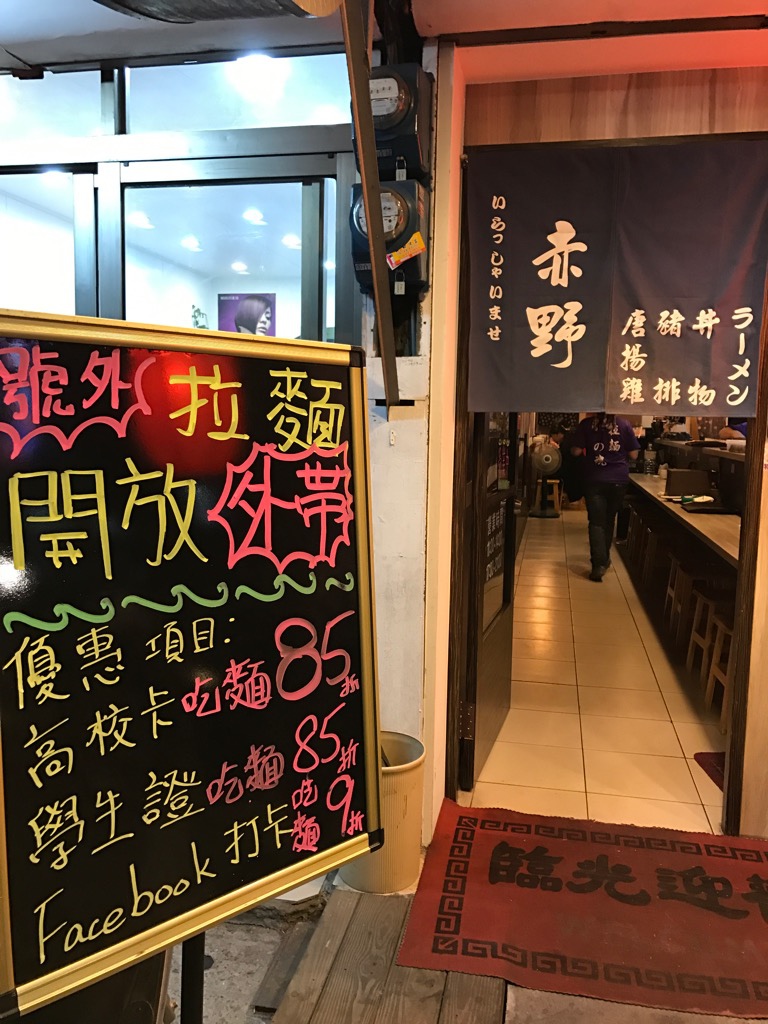 號外 拉麵
開放 外帶
優惠項目:
高校卡吃麵85折
學生證吃麵85折
Facebook打卡吃麵9折
いらっしゃいませ
赤野
ラーメン
丼物
豬排
唐揚雞
臨光迎